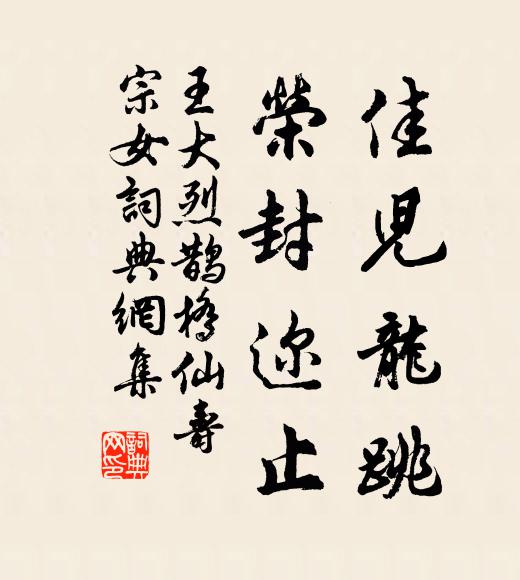 佳兒龍跳
榮封迩止
王大烈鵲橋仙壽
宗女詞典網集
詞典
网印